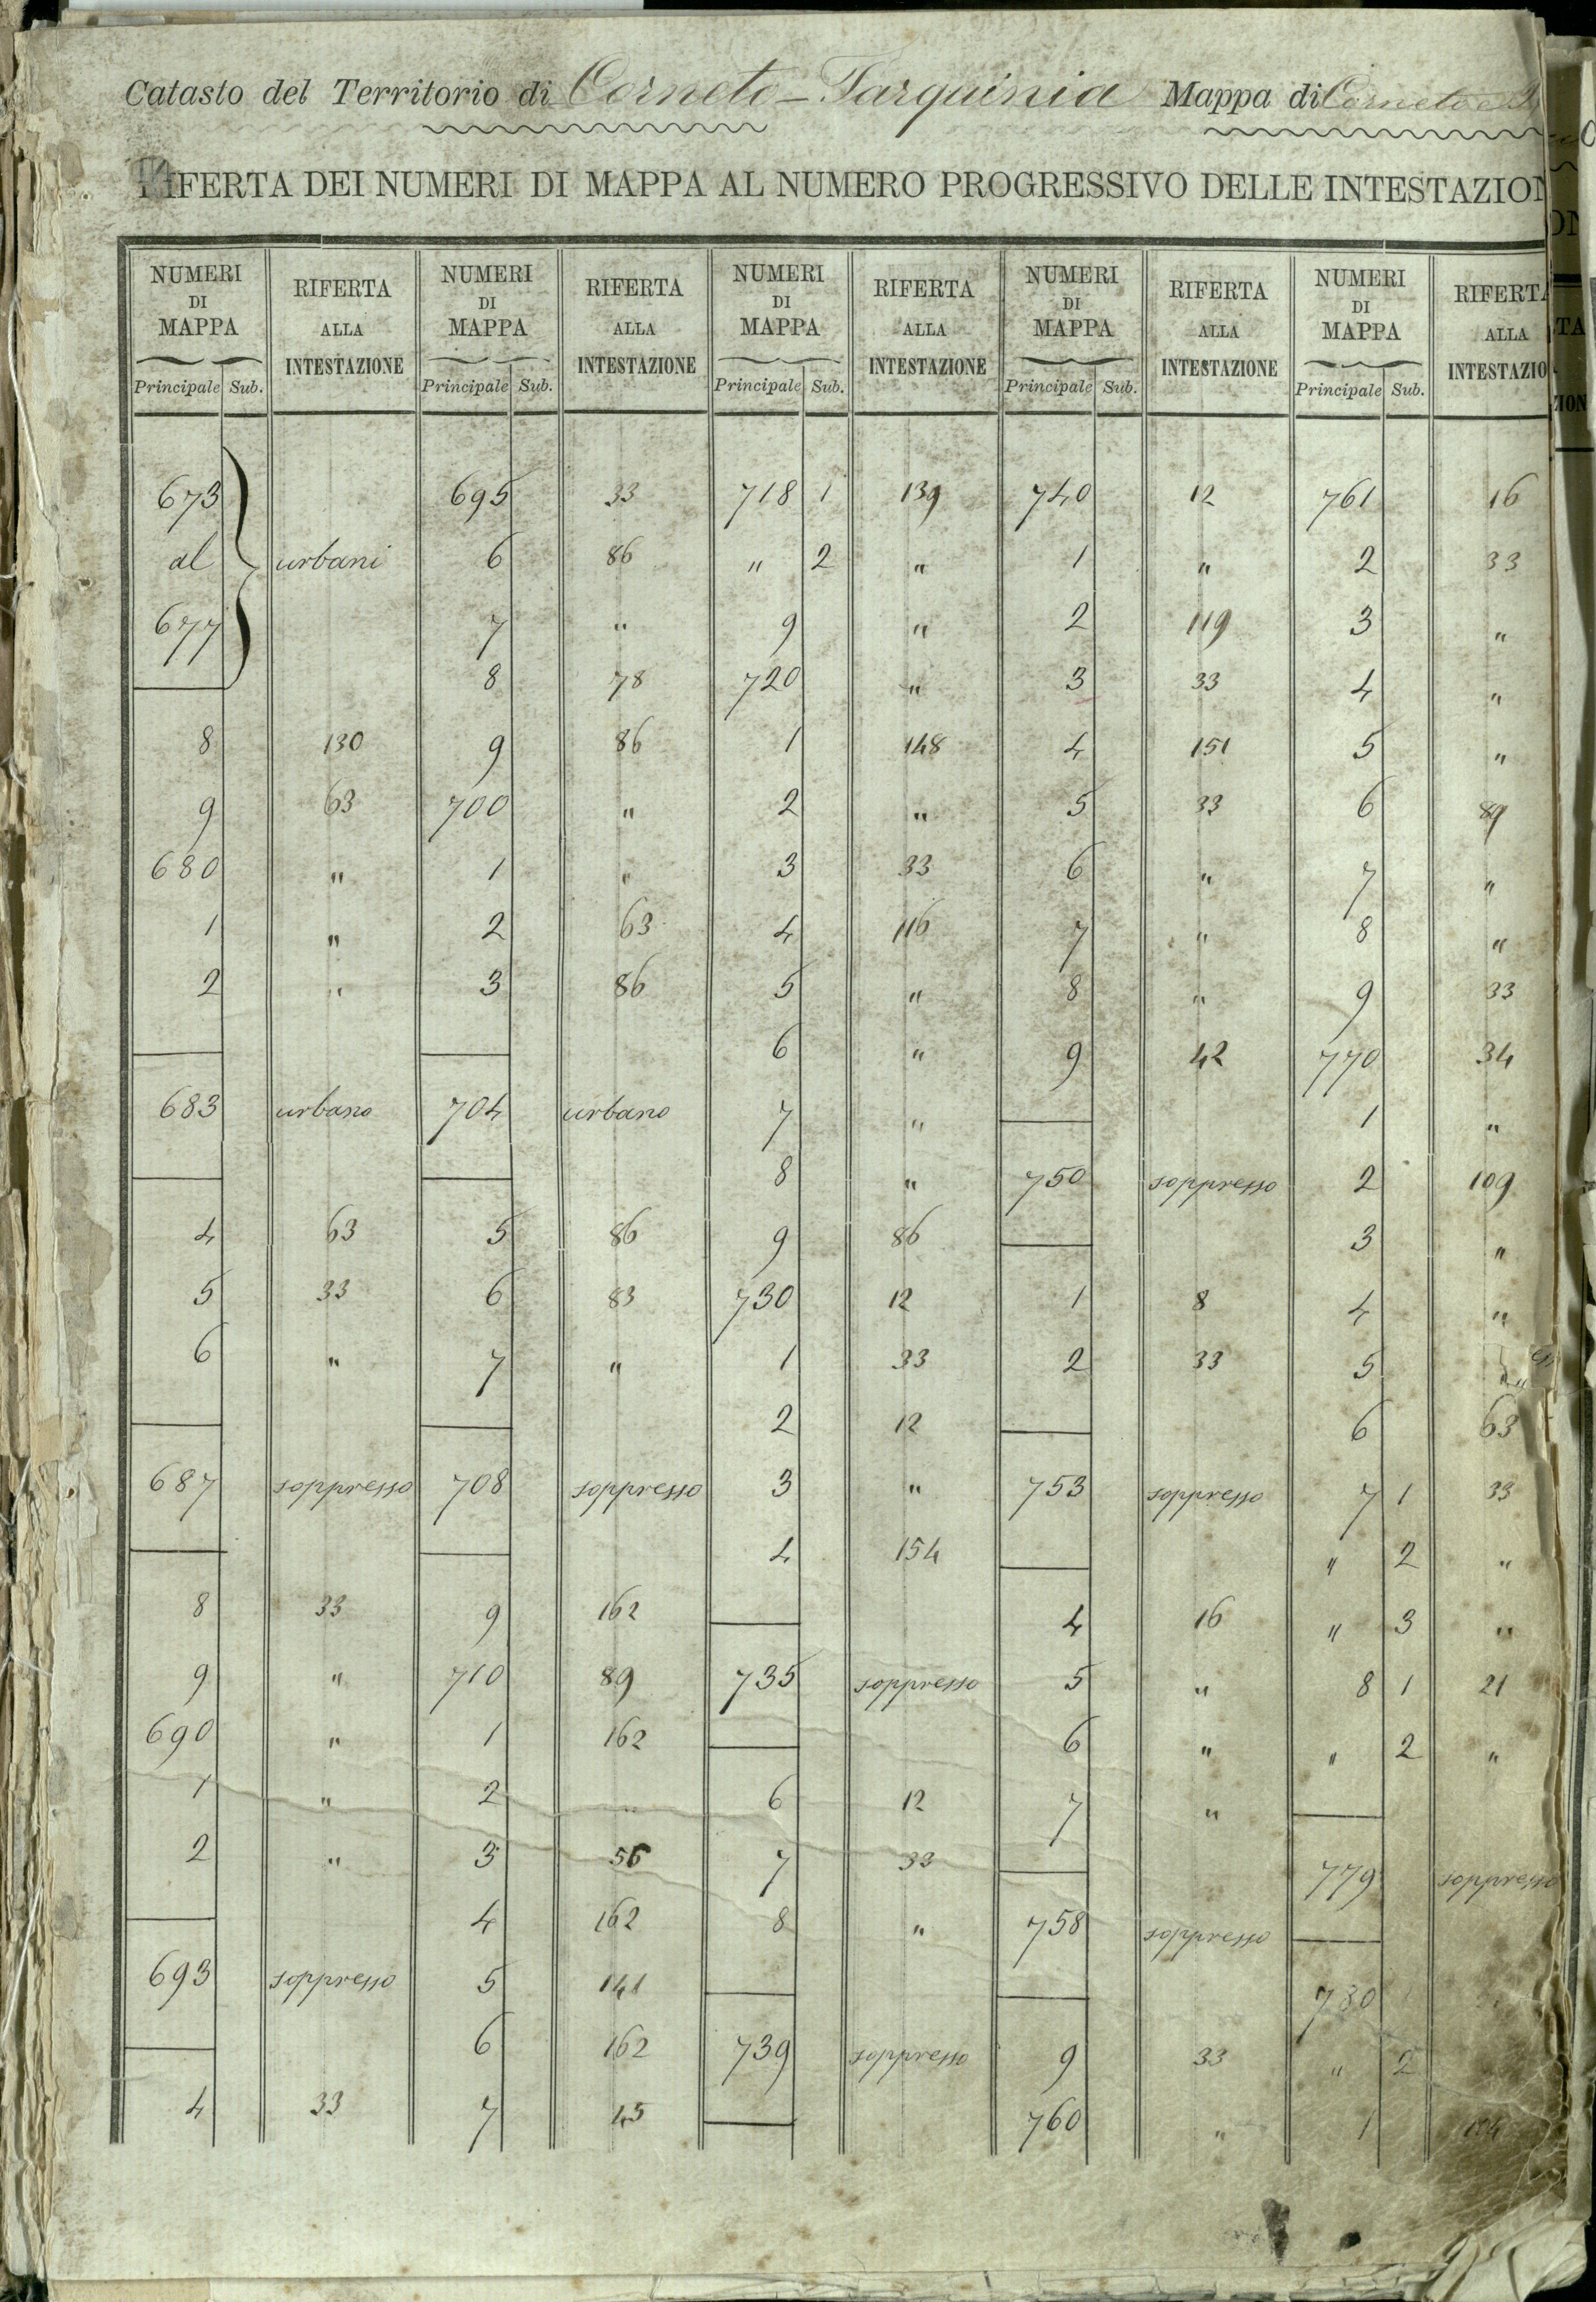 Catasto del Territorio di Corneto-Tarquinia Mappa di Corneto
RIFERTA DEI NUMERI DI MAPPA AL NUMERO PROGRESSIVO DELLE INTESTAZION
NUMERI DI MAPPA RIFERTA ALLA INTESTAZIONE NUMERI DI MAPPA RIFERTA ALLA INTESTAZIONE NUMERI DI MAPPA RIFERTA ALLA INTESTAZIONE NUMERI DI MAPPA RIFERTA ALLA INTESTAZIONE NUMERI DI MAPPA RIFERTA ALLA INTESTAZIO
Principale Sub. Principale Sub. Principale Sub. Principale Sub. Principale Sub.
673
al urbani
677
8 130
9 63
680 "
1 "
2 "
683 urbano
4 63
5 33
6 "
687 soppresso
8 33
9 "
690 "
1 "
2 "
693 soppresso
4 33
695 33
6 86
7 "
8 78
9 86
700 "
1 "
2 63
3 86
704 urbano
5 86
6 83
7 "
708 soppresso
9 162
710 89
1 162
2 "
3 56
4 162
5 141
6 162
7 45
718 1 139
" 2 "
9 "
720 "
1 148
2 "
3 33
4 116
5 "
6 "
7 "
8 "
9 86
730 12
1 33
2 12
3 "
4 154
735 soppresso
6 12
7 33
8 "
739 soppresso
740 12
1 "
2 119
3 33
4 151
5 33
6 "
7 "
8 "
9 42
750 soppresso
1 8
2 33
753 soppresso
4 16
5 "
6 "
7 "
758 soppresso
9 33
760 "
761 16
2 33
3 "
4 "
5 "
6 89
7 "
8 "
9 33
770 34
1 "
2 109
3 "
4 "
5 "
6 63
7 1 33
" 2 "
" 3 "
8 1 21
" 2 "
779 soppresso
780
" 2
1 104